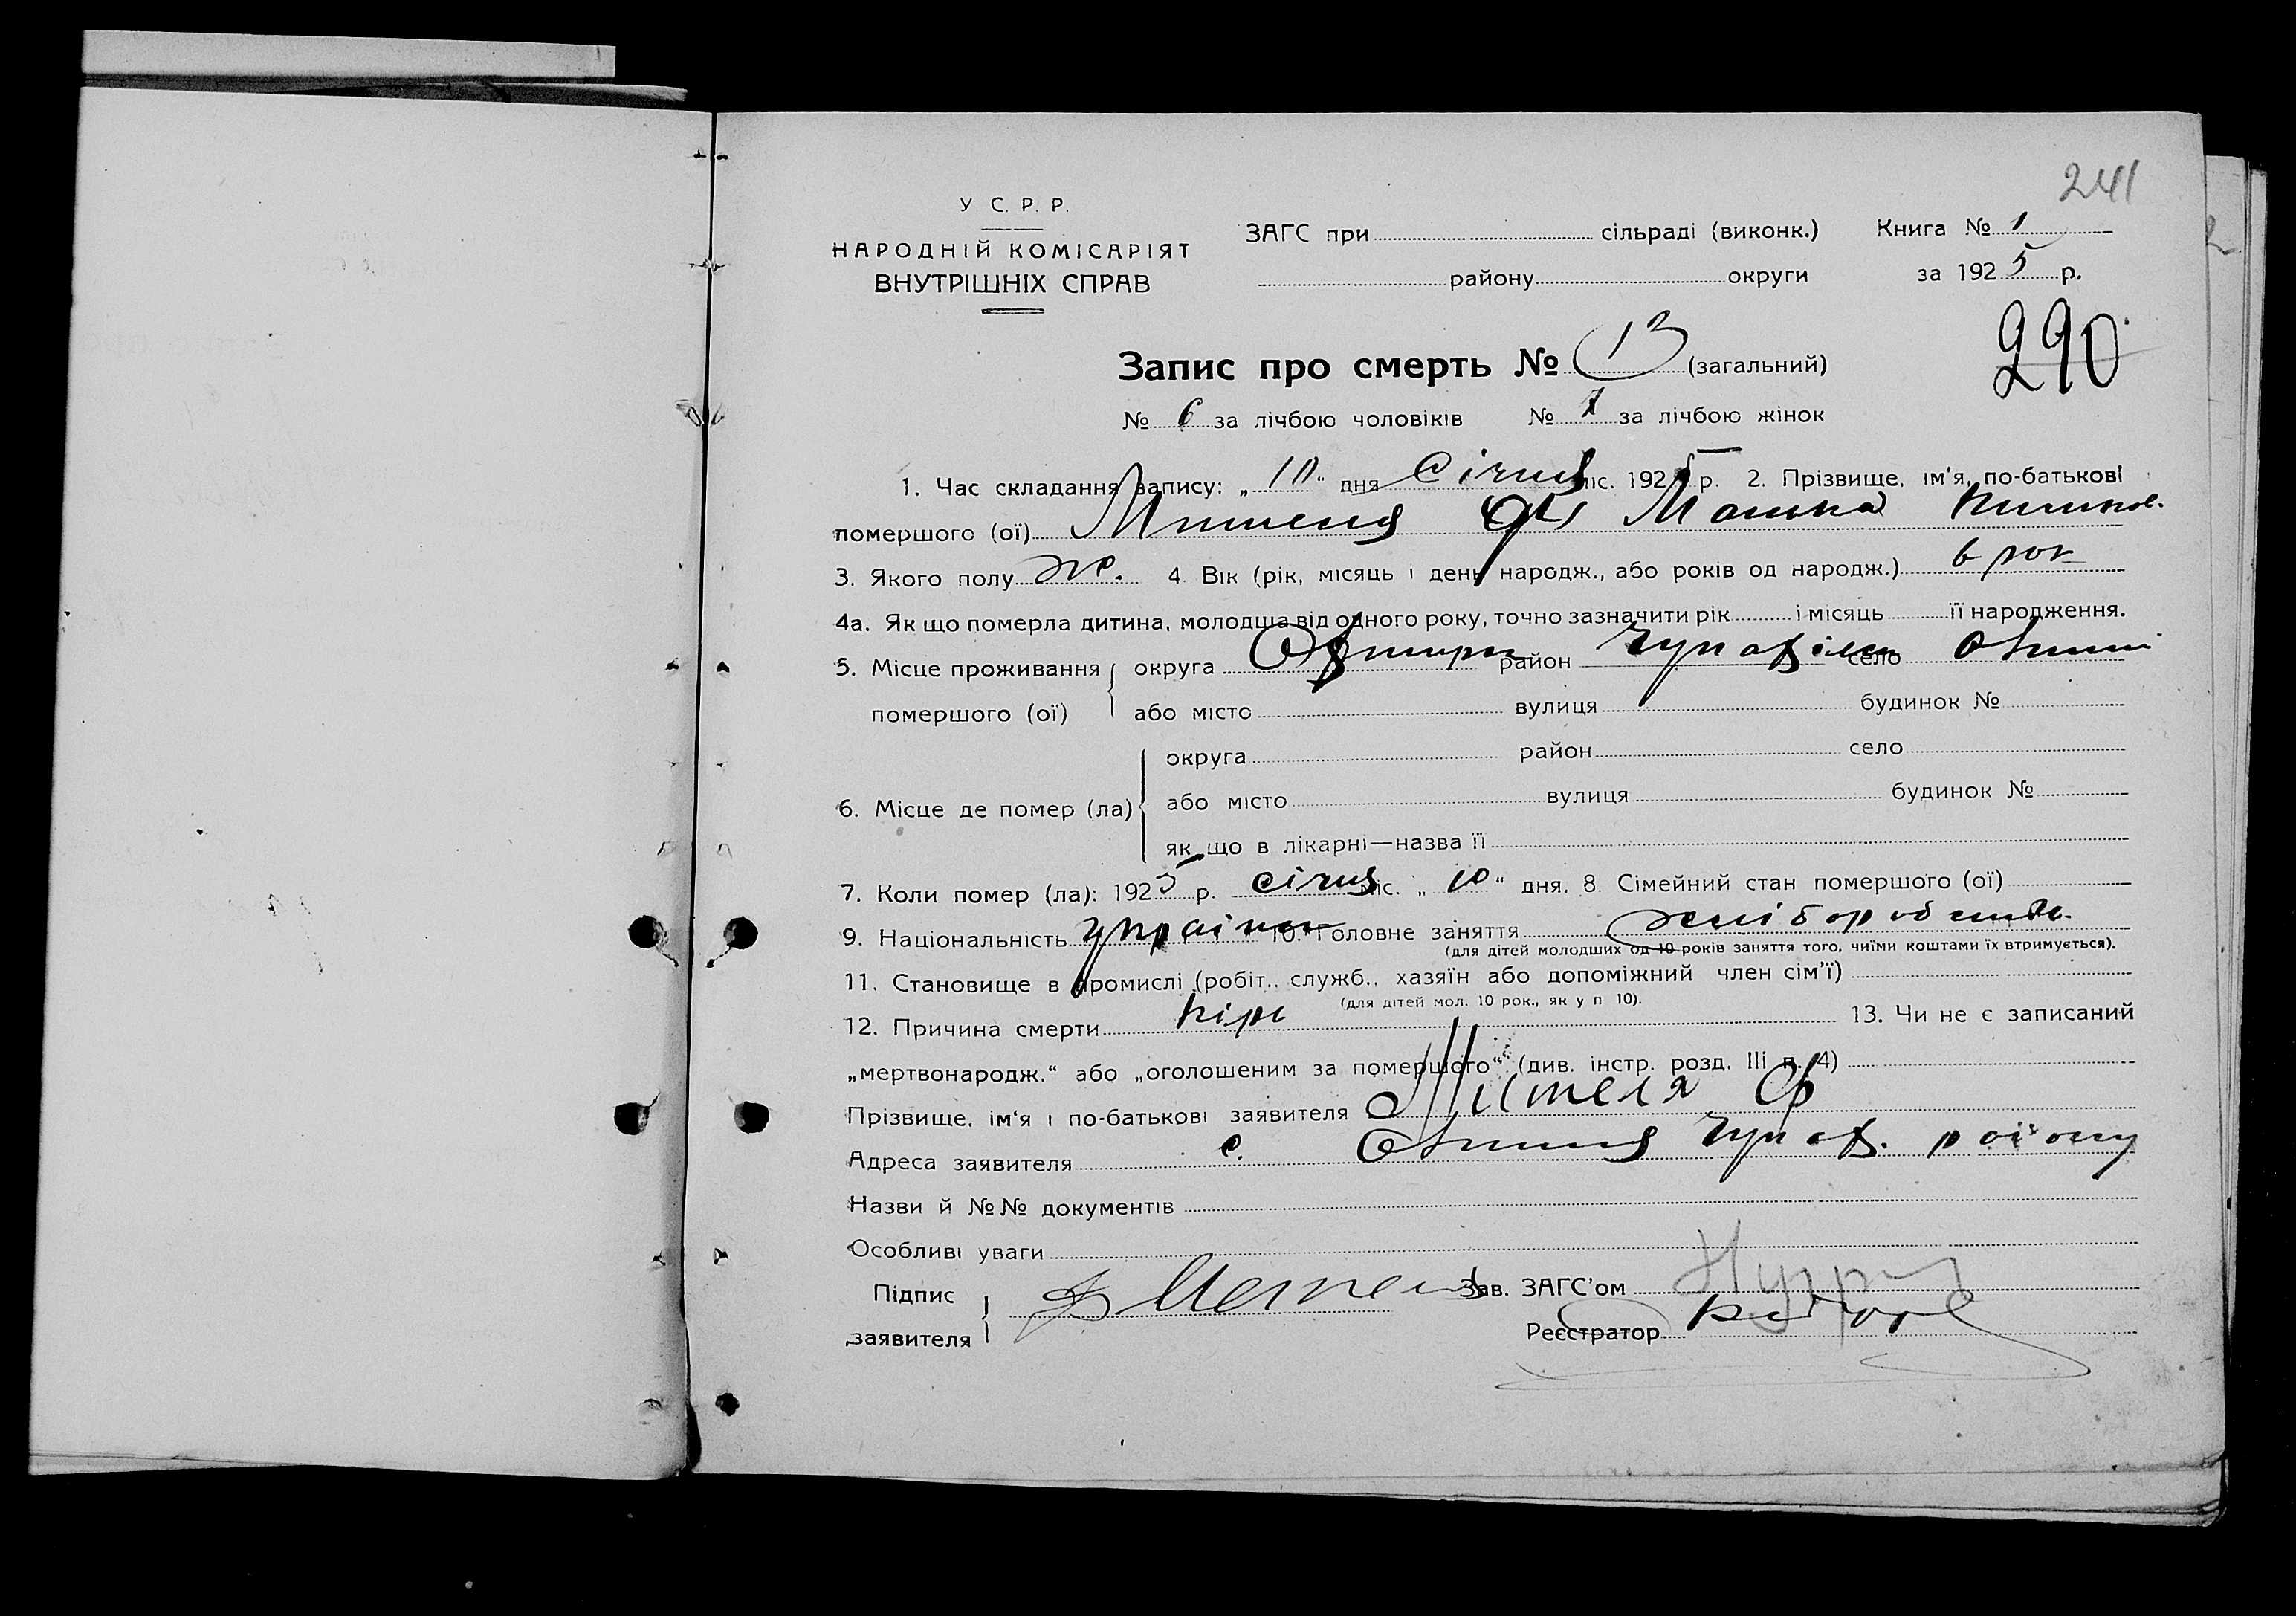 241
У С. Р. Р.
НАРОДНІЙ КОМІСАРІЯТ
ВНУТРІШНІХ СПРАВ
ЗАГС при сільраді (виконк.) Книга № 1
району округи за 1925 р.
290
Запис про смерть № 13 (загальний)
№ 6 за лічбою чоловіків № 7 за лічбою жінок
1. Час складання запису: „10“ дня Січня міс. 1925 р. 2. Прізвище, ім'я, по-батькові
помершого (ої)
3. Якого полу ж. 4. Вік (рік, місяць і день народж., або років од народж.) 6 рок
4а. Як що померла дитина, молодша від одного року, точно зазначити рік і місяць її народження.
5. Місце проживання помершого (ої) округа район село
або місто вулиця будинок №
6. Місце де помер (ла) округа район село
або місто вулиця будинок №
як що в лікарні—назва її
7. Коли помер (ла): 1925 р. січня міс. „10“ дня. 8. Сімейний стан помершого (ої)
9. Національність україн 10. Головне заняття
(для дітей молодших од 10 років заняття того, чиїми коштами їх втримується).
11. Становище в промислі (робіт., служб., хазяїн або допоміжний член сім'ї)
(для дітей мол. 10 рок., як у п 10).
12. Причина смерти кір 13. Чи не є записаний
„мертвонародж.“ або „оголошеним за помершого“ (див. інстр. розд. III п. 4)
Прізвище, ім'я і по-батькові заявителя
Адреса заявителя с. району
Назви й №№ документів
Особливі уваги
Підпис заявителя Зав. ЗАГС'ом
Реєстратор